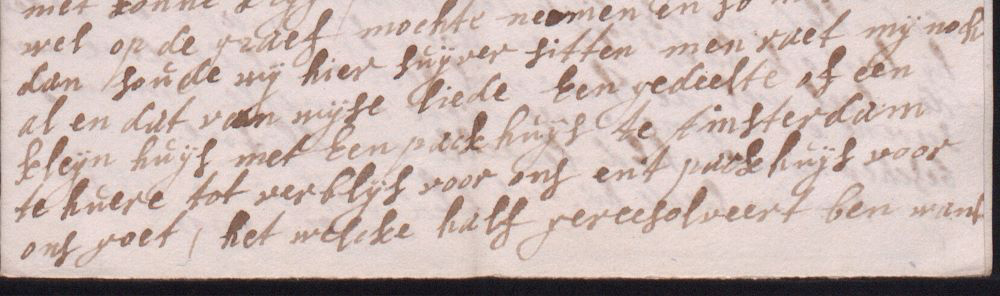 met konne
wel op de graef mochte neemen en so
dan soude wij hier suyver sitten men raet mij noch
al en dat van wijse liede een gedeelte of een
kleyn huys met een packhuys te Amsterdam
te huere tot verblyf voor ons ent packhuys voor
ons goet, het welcke half gereesolveert ben want